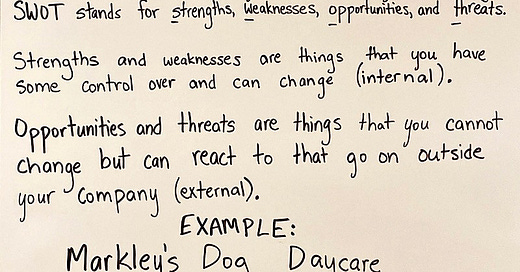 SWOT stands for strengths, weaknesses, opportunities, and threats.
Strengths and weaknesses are things that you have
some control over and can change (internal).
Opportunities and threats are things that you cannot
change but can react to that go on outside
your company (external).
EXAMPLE:
Markley's Dog Daycare